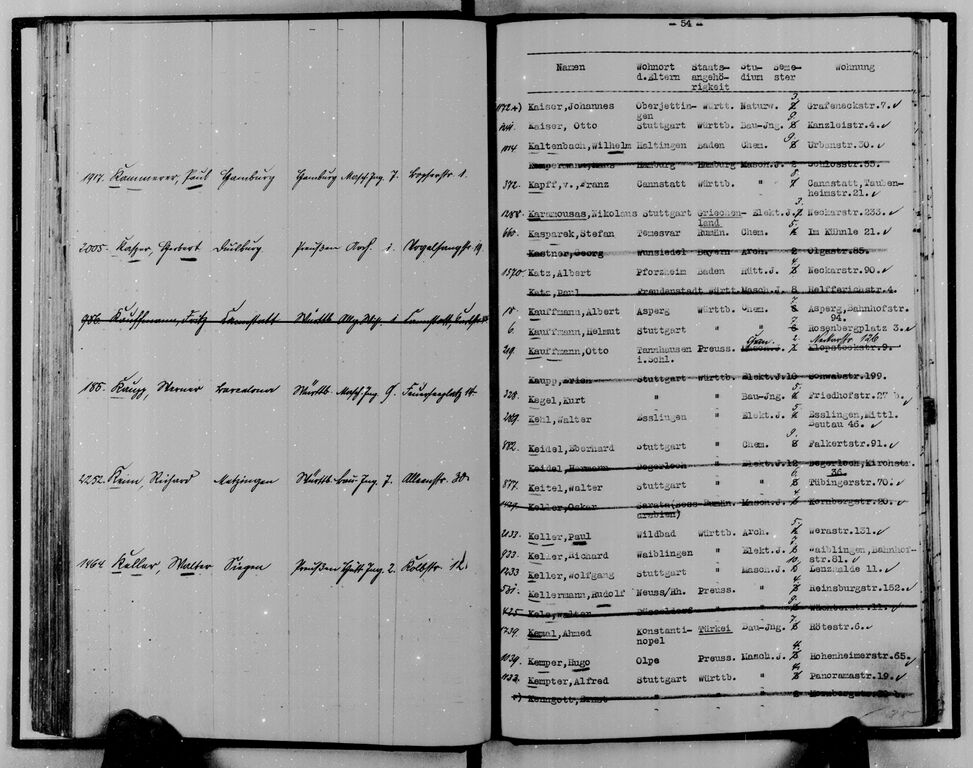 1917. Kammerer, Paul Hamburg Hamburg Masch.Ing. 7.
2005. Kayser, Herbert Duisburg Preußen Arch. 1. Vogelsangstr.
Kauffmann, Fritz Cannstatt Württb.
185. Kaupp, Werner Barcelona Württb. Masch.Ing. 9. Feuerseeplatz 14.
2252. Keim, Richard Metzingen Württb. Bau Ing. 7. Alleenstr. 30.
1864. Keller, Walter Siegen Preußen 2. Kolbstr.
- 54 -
Namen Wohnort Staats- Stu- Seme- Wohnung
d.Eltern angehö- dium ster
rigkeit
Kaiser, Johannes Oberjettin- Württ. Naturw. 3. Grafeneckstr.7.
gen
Kaiser, Otto Stuttgart Württb. Bau-Jng. 9. Kanzleistr.4.
Kaltenbach, Wilhelm Haltingen Baden Chem. 9. Urbanstr.30.
Hamburg Hamburg Masch.J. 2 Schlosstr.53.
372. Kapff, v., Franz Cannstatt Württb. " 8. Cannstatt, Tauben-
heimstr.21.
1288. Karamousas, Nikolaus Stuttgart Griechen- Elekt.J. 3. Neckarstr.233.
land
660. Kasparek, Stefan Temesvar Rumän. Chem. 5. Im Kühnle 21.
Kastner, Georg Wunsiedel Bayern Arch. 2 Olgastr.85.
1570. Katz, Albert Pforzheim Baden Hütt.J. 4. Neckarstr.90.
Katz, Paul Freudenstadt Württ. Masch.J. 8 Helfferichstr.4.
18. Kauffmann, Albert Asperg Württb. Chem. 7. Asperg, Bahnhofstr.
94.
6. Kauffmann, Helmut Stuttgart " " 7. Rosenbergplatz 3.
219. Kauffmann, Otto Tannhausen Preuss. 2. Klopstockstr.9. Neckarstr. 126
i.Schl.
Kaupp, Erich Stuttgart Württb. Elekt.J. 10 Schwabstr.199.
328. Kegel, Kurt " " Bau-Jng. 5. Friedhofstr.27 b.
269. Kehl, Walter Esslingen " Elekt.J. 5. Esslingen, Mittl.
Beutau 46.
882. Keidel, Eberhard Stuttgart " Chem. 9. Falkertstr.91.
Keidel, Hermann Degerloch " Elekt.J. 12 Degerloch, Kirchstr.
36.
877. Keitel, Walter Stuttgart " " 6. Tübingerstr.70.
Keller, Oskar Sarata(Bess- Rumän. Masch.J. 4. Hornbergstr.20.
arabien)
2133. Keller, Paul Wildbad Württb. Arch. 5. Werastr.131.
933. Keller, Richard Waiblingen " Elekt.J. 7. Waiblingen, Bahnhof-
str.81.
1233 Keller, Wolfgang Stuttgart " Masch.J. 10 Lenzhalde 11.
531. Kellermann, Rudolf Neuss/Rh. Preuss. " 4. Reinsburgstr.152.
425. Kels, Walter Düsseldorf " " 9. Wächterstr.11.
1239. Kemal, Ahmed Konstanti- Türkei Bau-Jng. 7. Rötestr.6.
nopel
1039. Kemper, Hugo Olpe Preuss. Masch.J. 4. Hohenheimerstr.65.
1133. Kempter, Alfred Stuttgart Württb. " 4. Panoramastr.19.
Kenngott, Ernst " " "